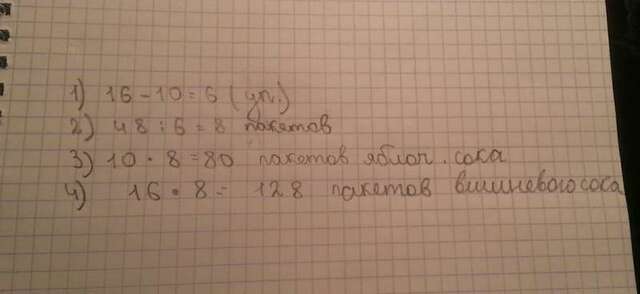 1) 16 - 10 = 6 (уп.)
2) 48 : 6 = 8 пакетов
3) 10 · 8 = 80 пакетов яблоч. сока
4) 16 · 8 = 128 пакетов вишневого сока